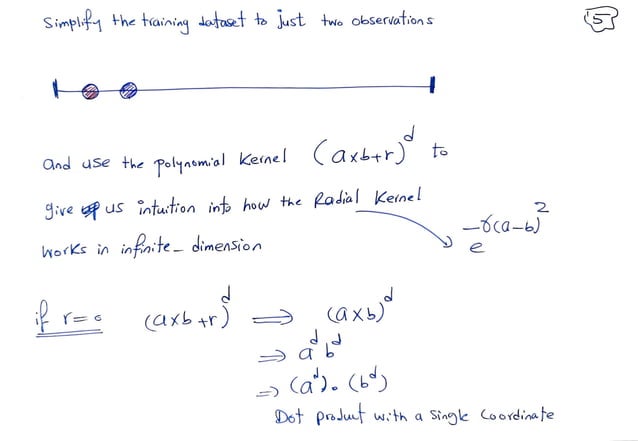 Simplify the training dataset to just two observations
5
and use the polynomial Kernel (a×b+r)^d to
give us intuition into how the Radial Kernel
works in infinite-dimension
e^-γ(a-b)^2
if r=0 (a×b+r)^d ⟹ (a×b)^d
⟹ a^d b^d
⟹ (a^d).(b^d)
Dot product with a single coordinate